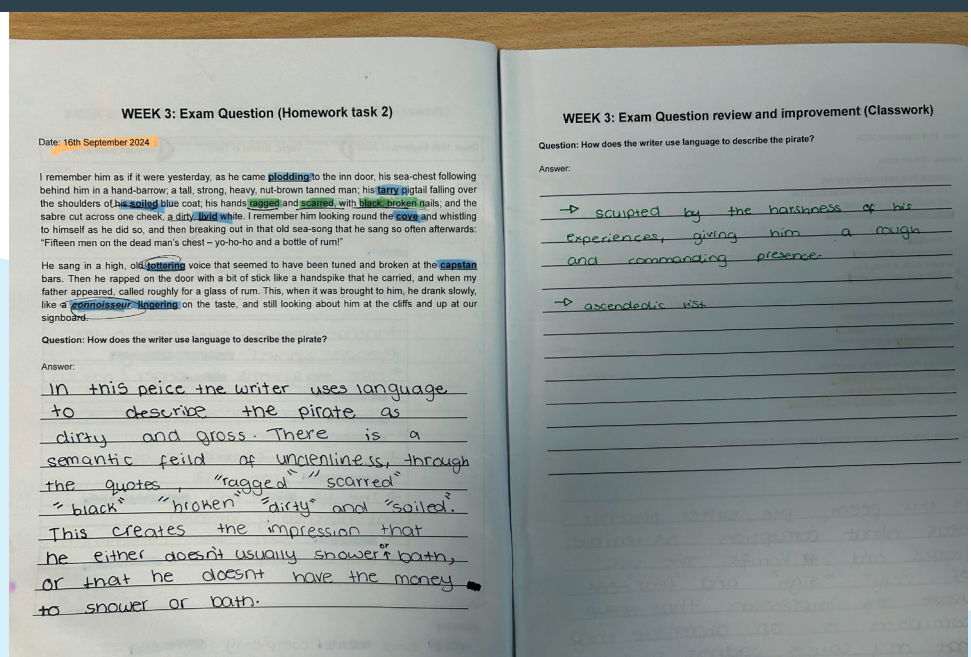 WEEK 3: Exam Question (Homework task 2)
Date: 16th September 2024
I remember him as if it were yesterday, as he came plodding to the inn door, his sea-chest following
behind him in a hand-barrow; a tall, strong, heavy, nut-brown tanned man; his tarry pigtail falling over
the shoulders of his soiled blue coat; his hands ragged and scarred, with black, broken nails; and the
sabre cut across one cheek, a dirty, livid white. I remember him looking round the cove and whistling
to himself as he did so, and then breaking out in that old sea-song that he sang so often afterwards:
“Fifteen men on the dead man’s chest – yo-ho-ho and a bottle of rum!”
He sang in a high, old tottering voice that seemed to have been tuned and broken at the capstan
bars. Then he rapped on the door with a bit of stick like a handspike that he carried, and when my
father appeared, called roughly for a glass of rum. This, when it was brought to him, he drank slowly,
like a connoisseur, lingering on the taste, and still looking about him at the cliffs and up at our
signboard.
Question: How does the writer use language to describe the pirate?
Answer:
In this peice the writer uses language
to describe the pirate as
dirty and gross. There is a
semantic feild of unclenliness, through
the quotes, "ragged" "scarred"
"black" "broken" "dirty" and "soiled".
This creates the impression that
he either doesn't usually shower or bath,
or that he doesnt have the money
to shower or bath.
WEEK 3: Exam Question review and improvement (Classwork)
Question: How does the writer use language to describe the pirate?
Answer:
→ sculpted by the harshness of his
experiences, giving him a rough
and commanding presence.
→ ascendedic